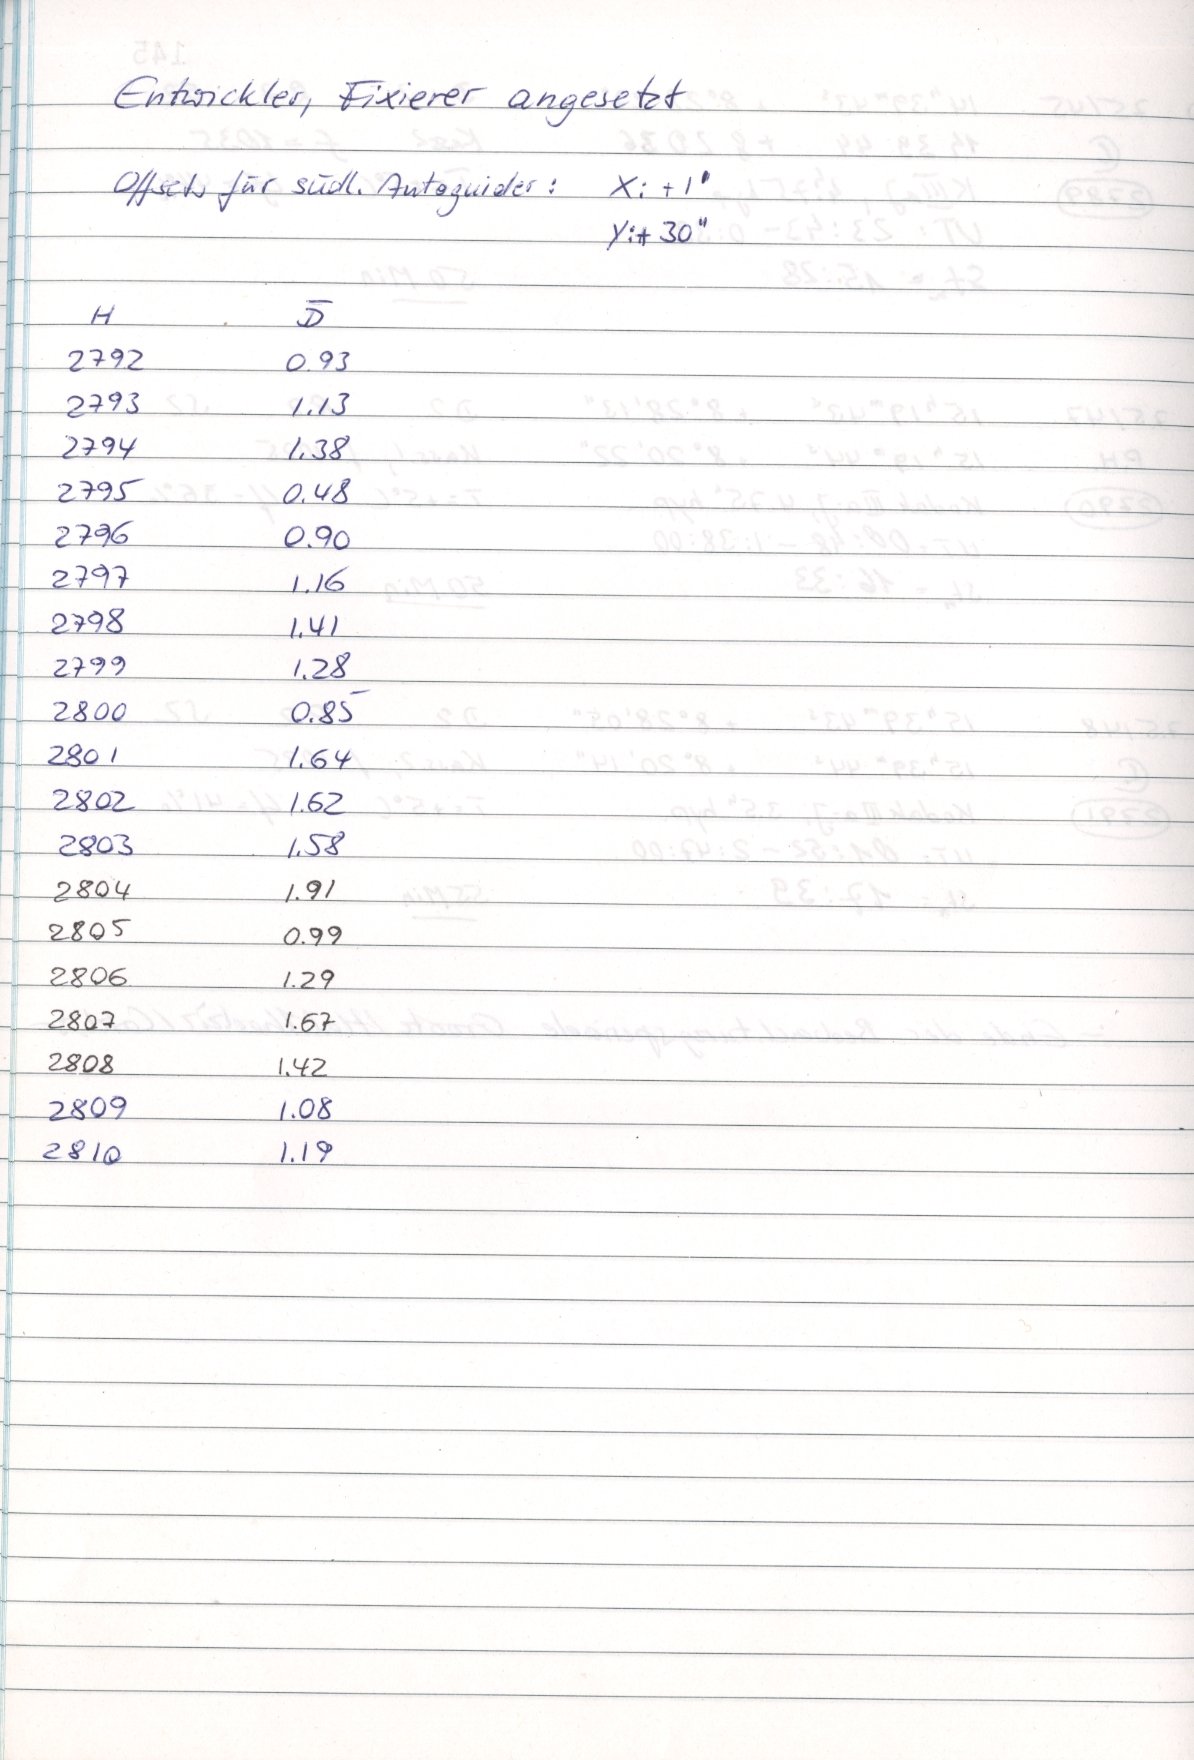 Entwickler, Fixierer angesetzt
Offsets für südl. Autoguider: X: +1"
Y: + 30"
H D̅
2792 0.93
2793 1.13
2794 1.38
2795 0.48
2796 0.90
2797 1.16
2798 1.41
2799 1.28
2800 0.85
2801 1.64
2802 1.62
2803 1.58
2804 1.91
2805 0.99
2806 1.29
2807 1.67
2808 1.42
2809 1.08
2810 1.19